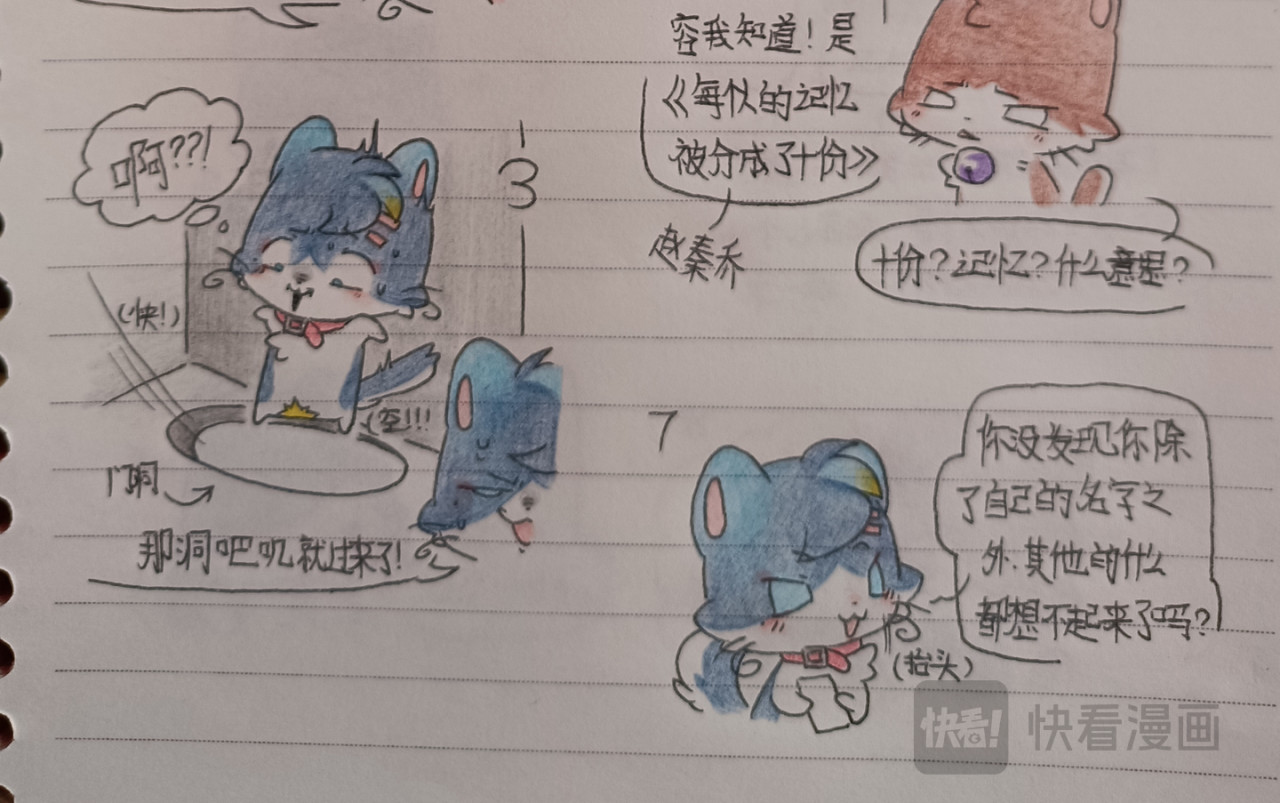 啊??!
3
(快!)
(空!!!
门洞
那洞吧叽就过来了!
容我知道!是
《每似的记忆
被分成了十份》
赵秦乔
十份?记忆?什么意思?
7
你没发现你除
了自己的名字之
外.其他的什么
都想不起来了吗?
(抬头)
快看!
快看漫画